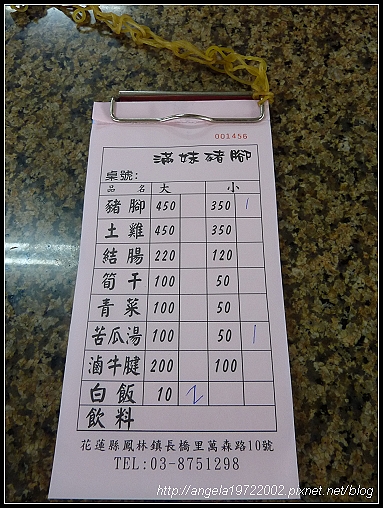 001456
滿妹豬腳
桌號:
品 名 大 小
豬腳 450 350 1
土雞 450 350
結腸 220 120
筍干 100 50
青菜 100 50
苦瓜湯 100 50 1
滷牛腱 200 100
白飯 10 2
飲料
花蓮縣鳳林鎮長橋里萬森路10號
TEL:03-8751298
http://angela19722002.pixnet.net/blog